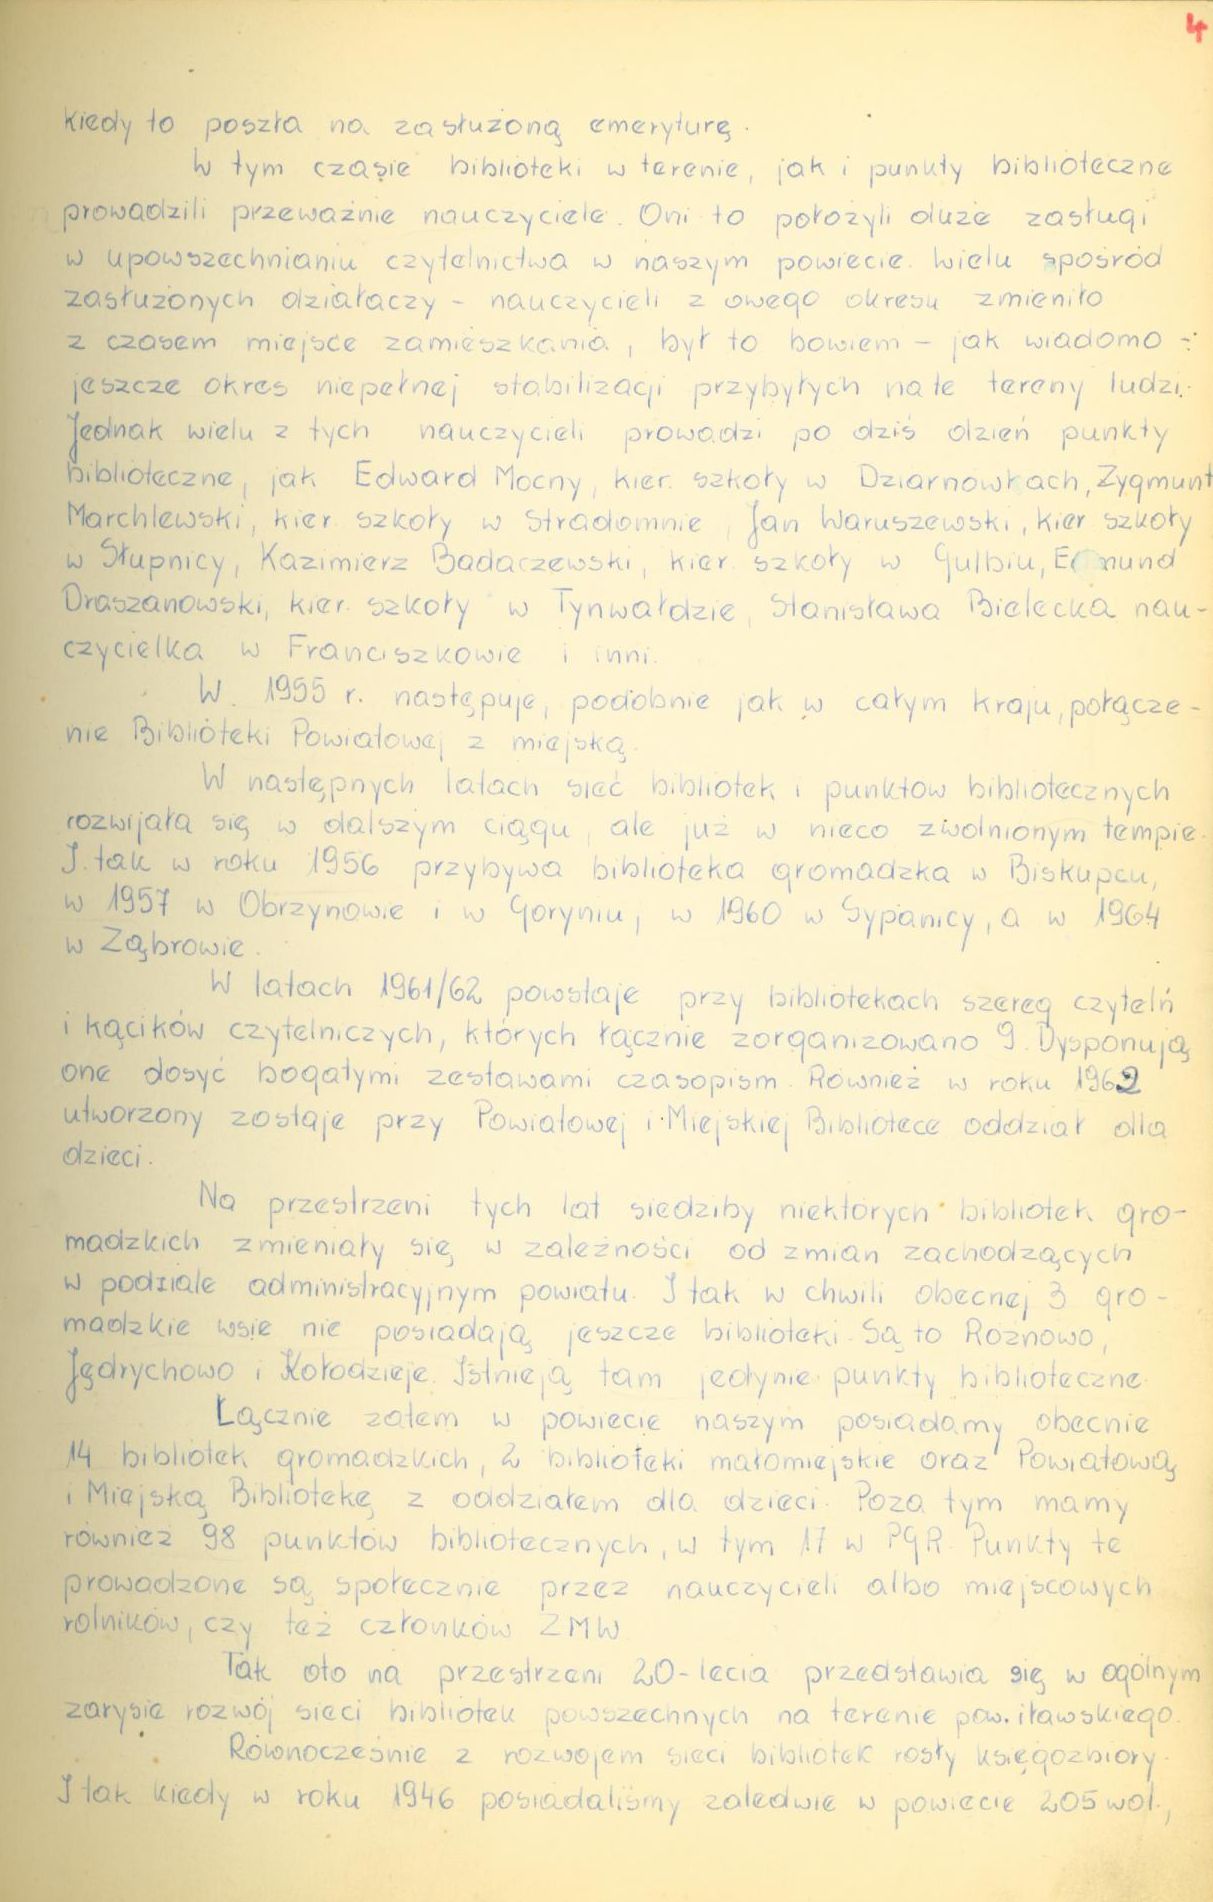 4
kiedy to poszła na zasłużoną emeryturę.
W tym czasie biblioteki w terenie, jak i punkty biblioteczne
prowadzili przeważnie nauczyciele. Oni to położyli duże zasługi
w upowszechnianiu czytelnictwa w naszym powiecie. Wielu spośród
zasłużonych działaczy - nauczycieli z owego okresu zmieniło
z czasem miejsce zamieszkania, był to bowiem - jak wiadomo -
jeszcze okres niepełnej stabilizacji przybyłych na te tereny ludzi.
Jednak wielu z tych nauczycieli prowadzi po dziś dzień punkty
biblioteczne, jak Edward Mocny, kier. szkoły w Dziarnówkach, Zygmunt
Marchlewski, kier. szkoły w Stradomnie, Jan Waruszewski, kier szkoły
w Słupnicy, Kazimierz Badaczewski, kier. szkoły w Gulbiu, Edmund
Draszanowski, kier. szkoły w Tynwałdzie, Stanisława Bielecka nau-
czycielka w Franciszkowie i inni.
W 1955 r. następuje, podobnie jak w całym kraju, połącze-
nie Biblioteki Powiatowej z miejską.
W następnych latach sieć bibliotek i punktów bibliotecznych
rozwijała się w dalszym ciągu, ale już w nieco zwolnionym tempie.
I tak w roku 1956 przybywa biblioteka gromadzka w Biskupcu,
w 1957 w Obrzynowie i w Goryniu, w 1960 w Sypanicy, a w 1964
w Ząbrowie.
W latach 1961/62 powstaje przy bibliotekach szereg czytelń
i kącików czytelniczych, których łącznie zorganizowano 9. Dysponują
one dosyć bogatymi zestawami czasopism. Również w roku 1962
utworzony zostaje przy Powiatowej i Miejskiej Bibliotece oddział dla
dzieci.
Na przestrzeni tych lat siedziby niektórych bibliotek gro-
madzkich zmieniały się w zależności od zmian zachodzących
w podziale administracyjnym powiatu. I tak w chwili obecnej 3 gro-
madzkie wsie nie posiadają jeszcze biblioteki. Są to Rożnowo,
Jędrychowo i Kołodzieje. Istnieją tam jedynie punkty biblioteczne.
Łącznie zatem w powiecie naszym posiadamy obecnie
14 bibliotek gromadzkich, 2 biblioteki małomiejskie oraz Powiatową
i Miejską Bibliotekę z oddziałem dla dzieci. Poza tym mamy
również 98 punktów bibliotecznych, w tym 17 w PGR. Punkty te
prowadzone są społecznie przez nauczycieli albo miejscowych
rolników, czy też członków ZMW
Tak oto na przestrzeni 20-lecia przedstawia się w ogólnym
zarysie rozwój sieci bibliotek powszechnych na terenie pow. iławskiego.
Równocześnie z rozwojem sieci bibliotek rosły księgozbiory.
I tak kiedy w roku 1946 posiadaliśmy zaledwie w powiecie 205 wol.,